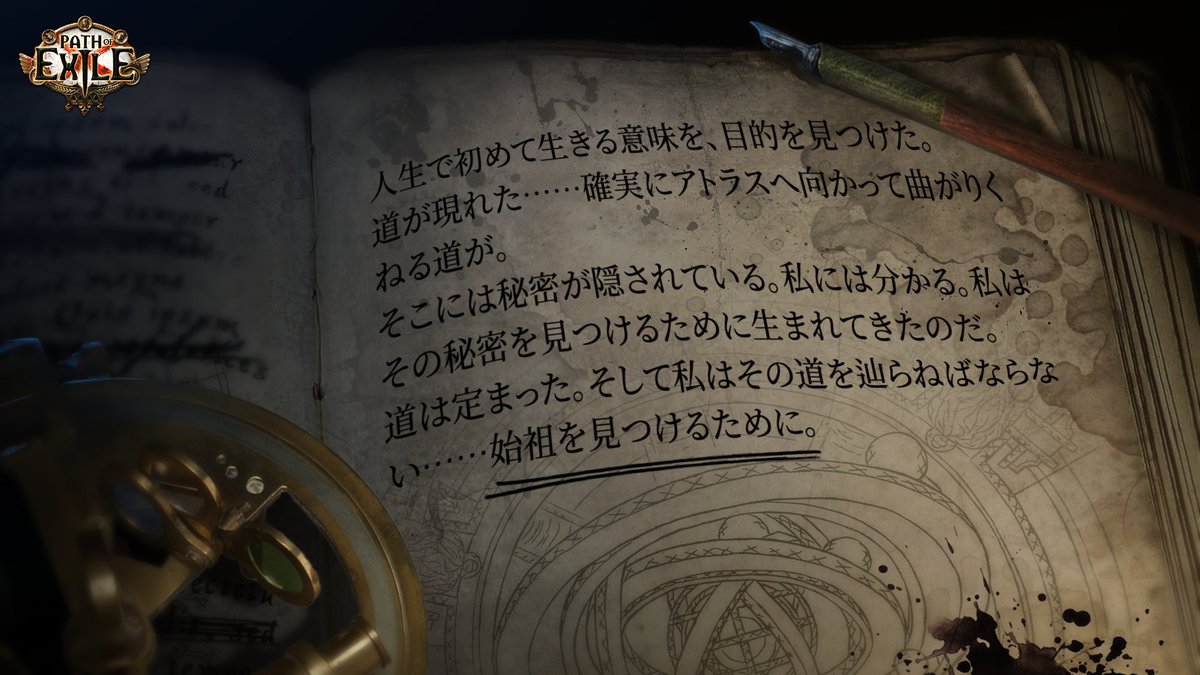 PATH OF
EXILE
人生で初めて生きる意味を、目的を見つけた。
道が現れた……確実にアトラスへ向かって曲がりく
ねる道が。
そこには秘密が隠されている。私には分かる。私は
その秘密を見つけるために生まれてきたのだ。
道は定まった。そして私はその道を辿らねばならな
い……始祖を見つけるために。